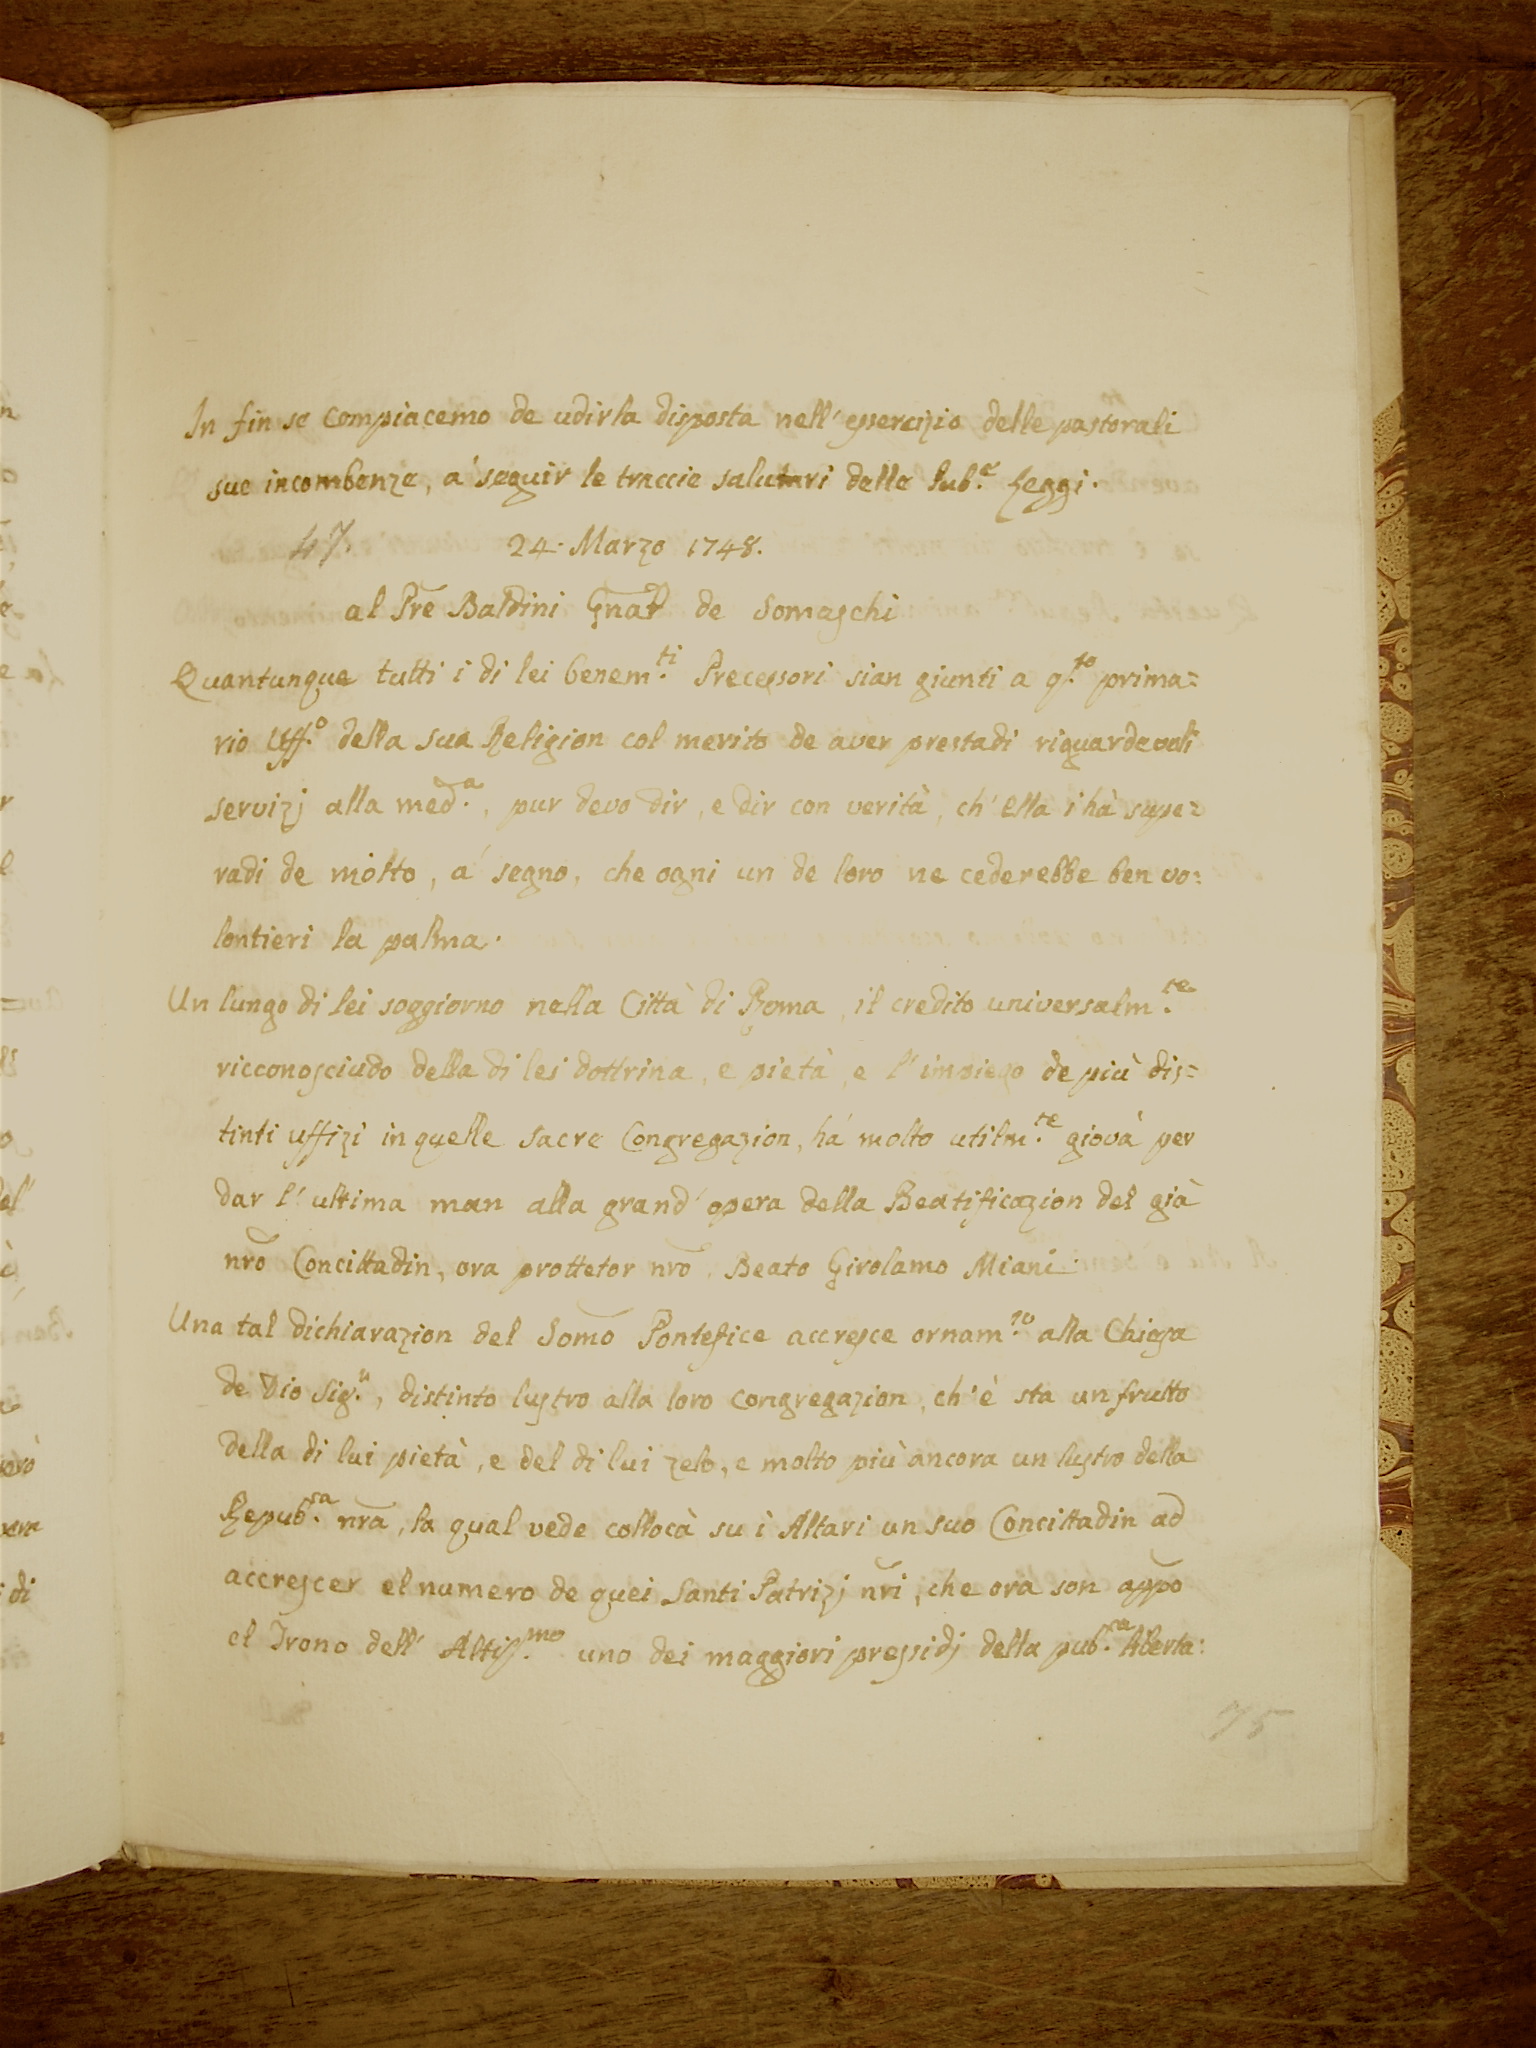 In fin se compiacemo de udirla disposta nell' essercizio delle pastorali
sue incombenze, a' seguir le traccie salutari delle Pub.e Leggi.
47. 24. Marzo 1748.
al Prẽ Baldini Gñal de Somaschi
Quantunque tutti i di lei benem.ti Precessori sian giunti a q.to prima=
rio Uff.o della sua Religion col merito de aver prestadi riguardevoli
servizj alla med.a, pur devo dir, e dir con verità, ch' Ella i hà supe=
radi de molto, a' segno, che ogni un de loro ne cederebbe ben vo:
lontieri la palma.
Un lungo di lei soggiorno nella Città di Roma, il credito universalm.te
ricconosciudo della di lei dottrina, e pietà, e l' impiego de più dis=
tinti uffizi in quelle Sacre Congregazion, há molto utilm.te giovà per
dar l' ultima man alla grand' opera della Beatificazion del già
nrõ Concittadin, ora prottetor nrõ, Beato Girolamo Miani.
Una tal dichiarazion del Somõ Pontefice accresce ornam.to alla Chiesa
de Dio Sig.r, distinto lustro alla loro Congregazion, ch' è sta un frutto
della di lui pietà, e del di lui zelo, e molto più ancora un lustro della
Repub.ca nrã, la qual vede collocà su i Altari un suo Concittadin ad
accrescer el numero de quei Santi Patrizj nrĩ, che ora son appõ
el Trono dell' Altiss.mo uno dei maggiori pressidj della pub.ca liberta:
75